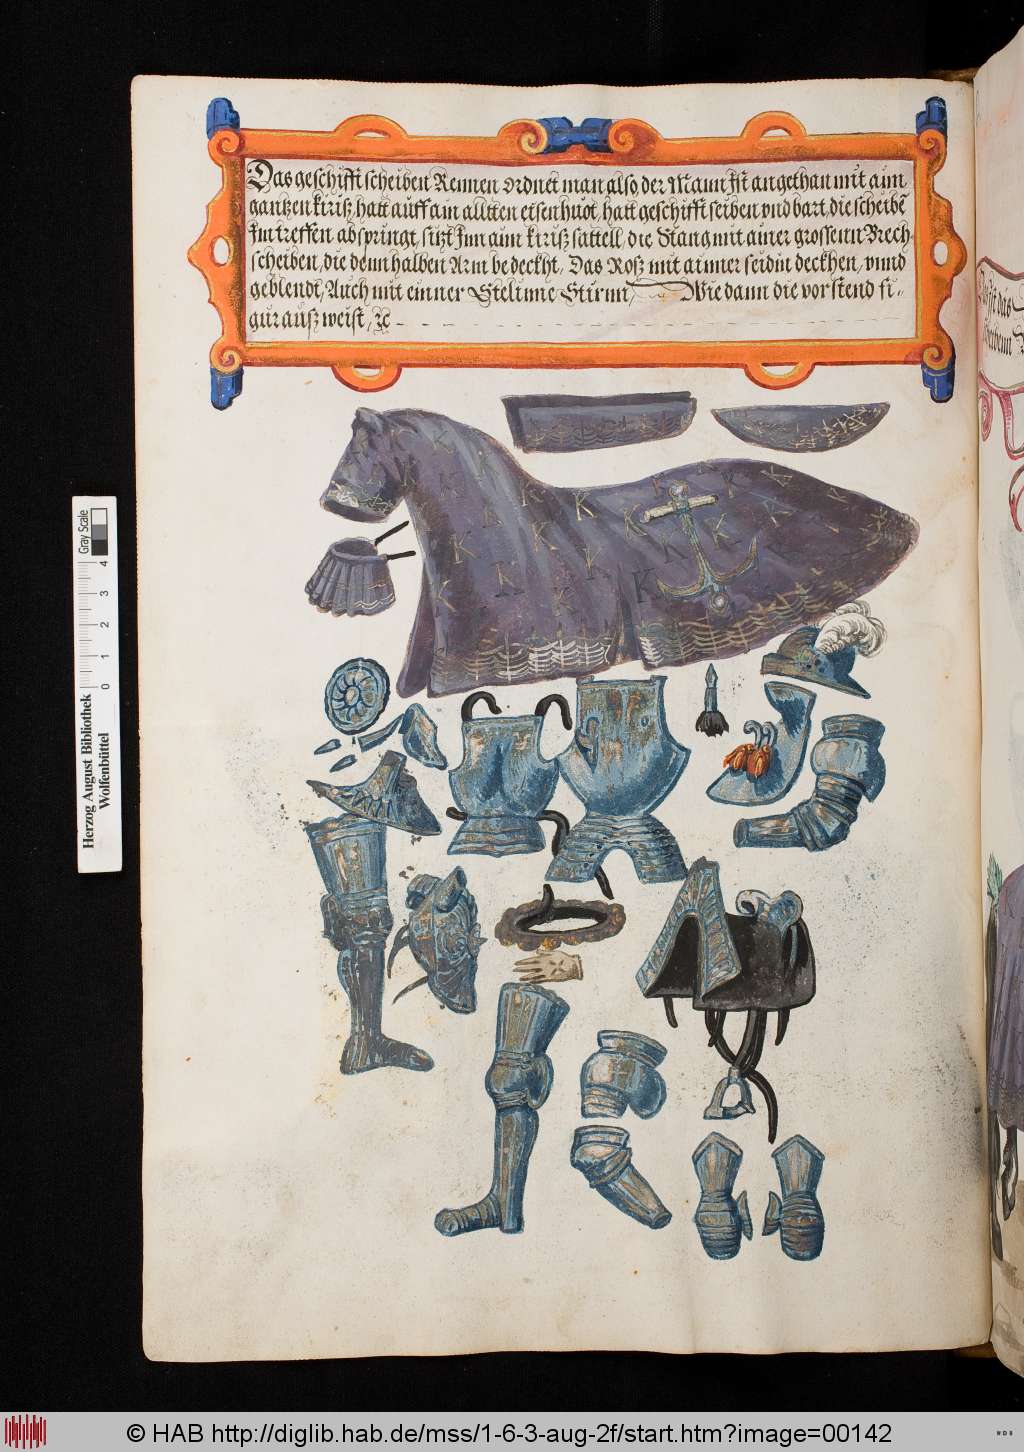 Das geschifft scheiben Rennen ordnet man also, der Mann Ist angethan mit aim
gantzen kiriß, hatt auff ain alltten eisenhuot, hatt geschifft seiben vnd bart, die scheibē
Im treffen abspringt, sitzt Inn aim kiriß sattell, die Stang mit ainer grossenn Brech-
scheiben, die denn halben Arm bedeckht, Das Roß mit ainner seidin deckhen, vnnd
geblendt, Auch mit einner Stelinne Stirnn, Wie dann die vorstend fi-
gur außweist, ꝛc
Gray Scale
0 1 2 3 4
Herzog August Bibliothek
Wolfenbüttel
© HAB http://diglib.hab.de/mss/1-6-3-aug-2f/start.htm?image=00142